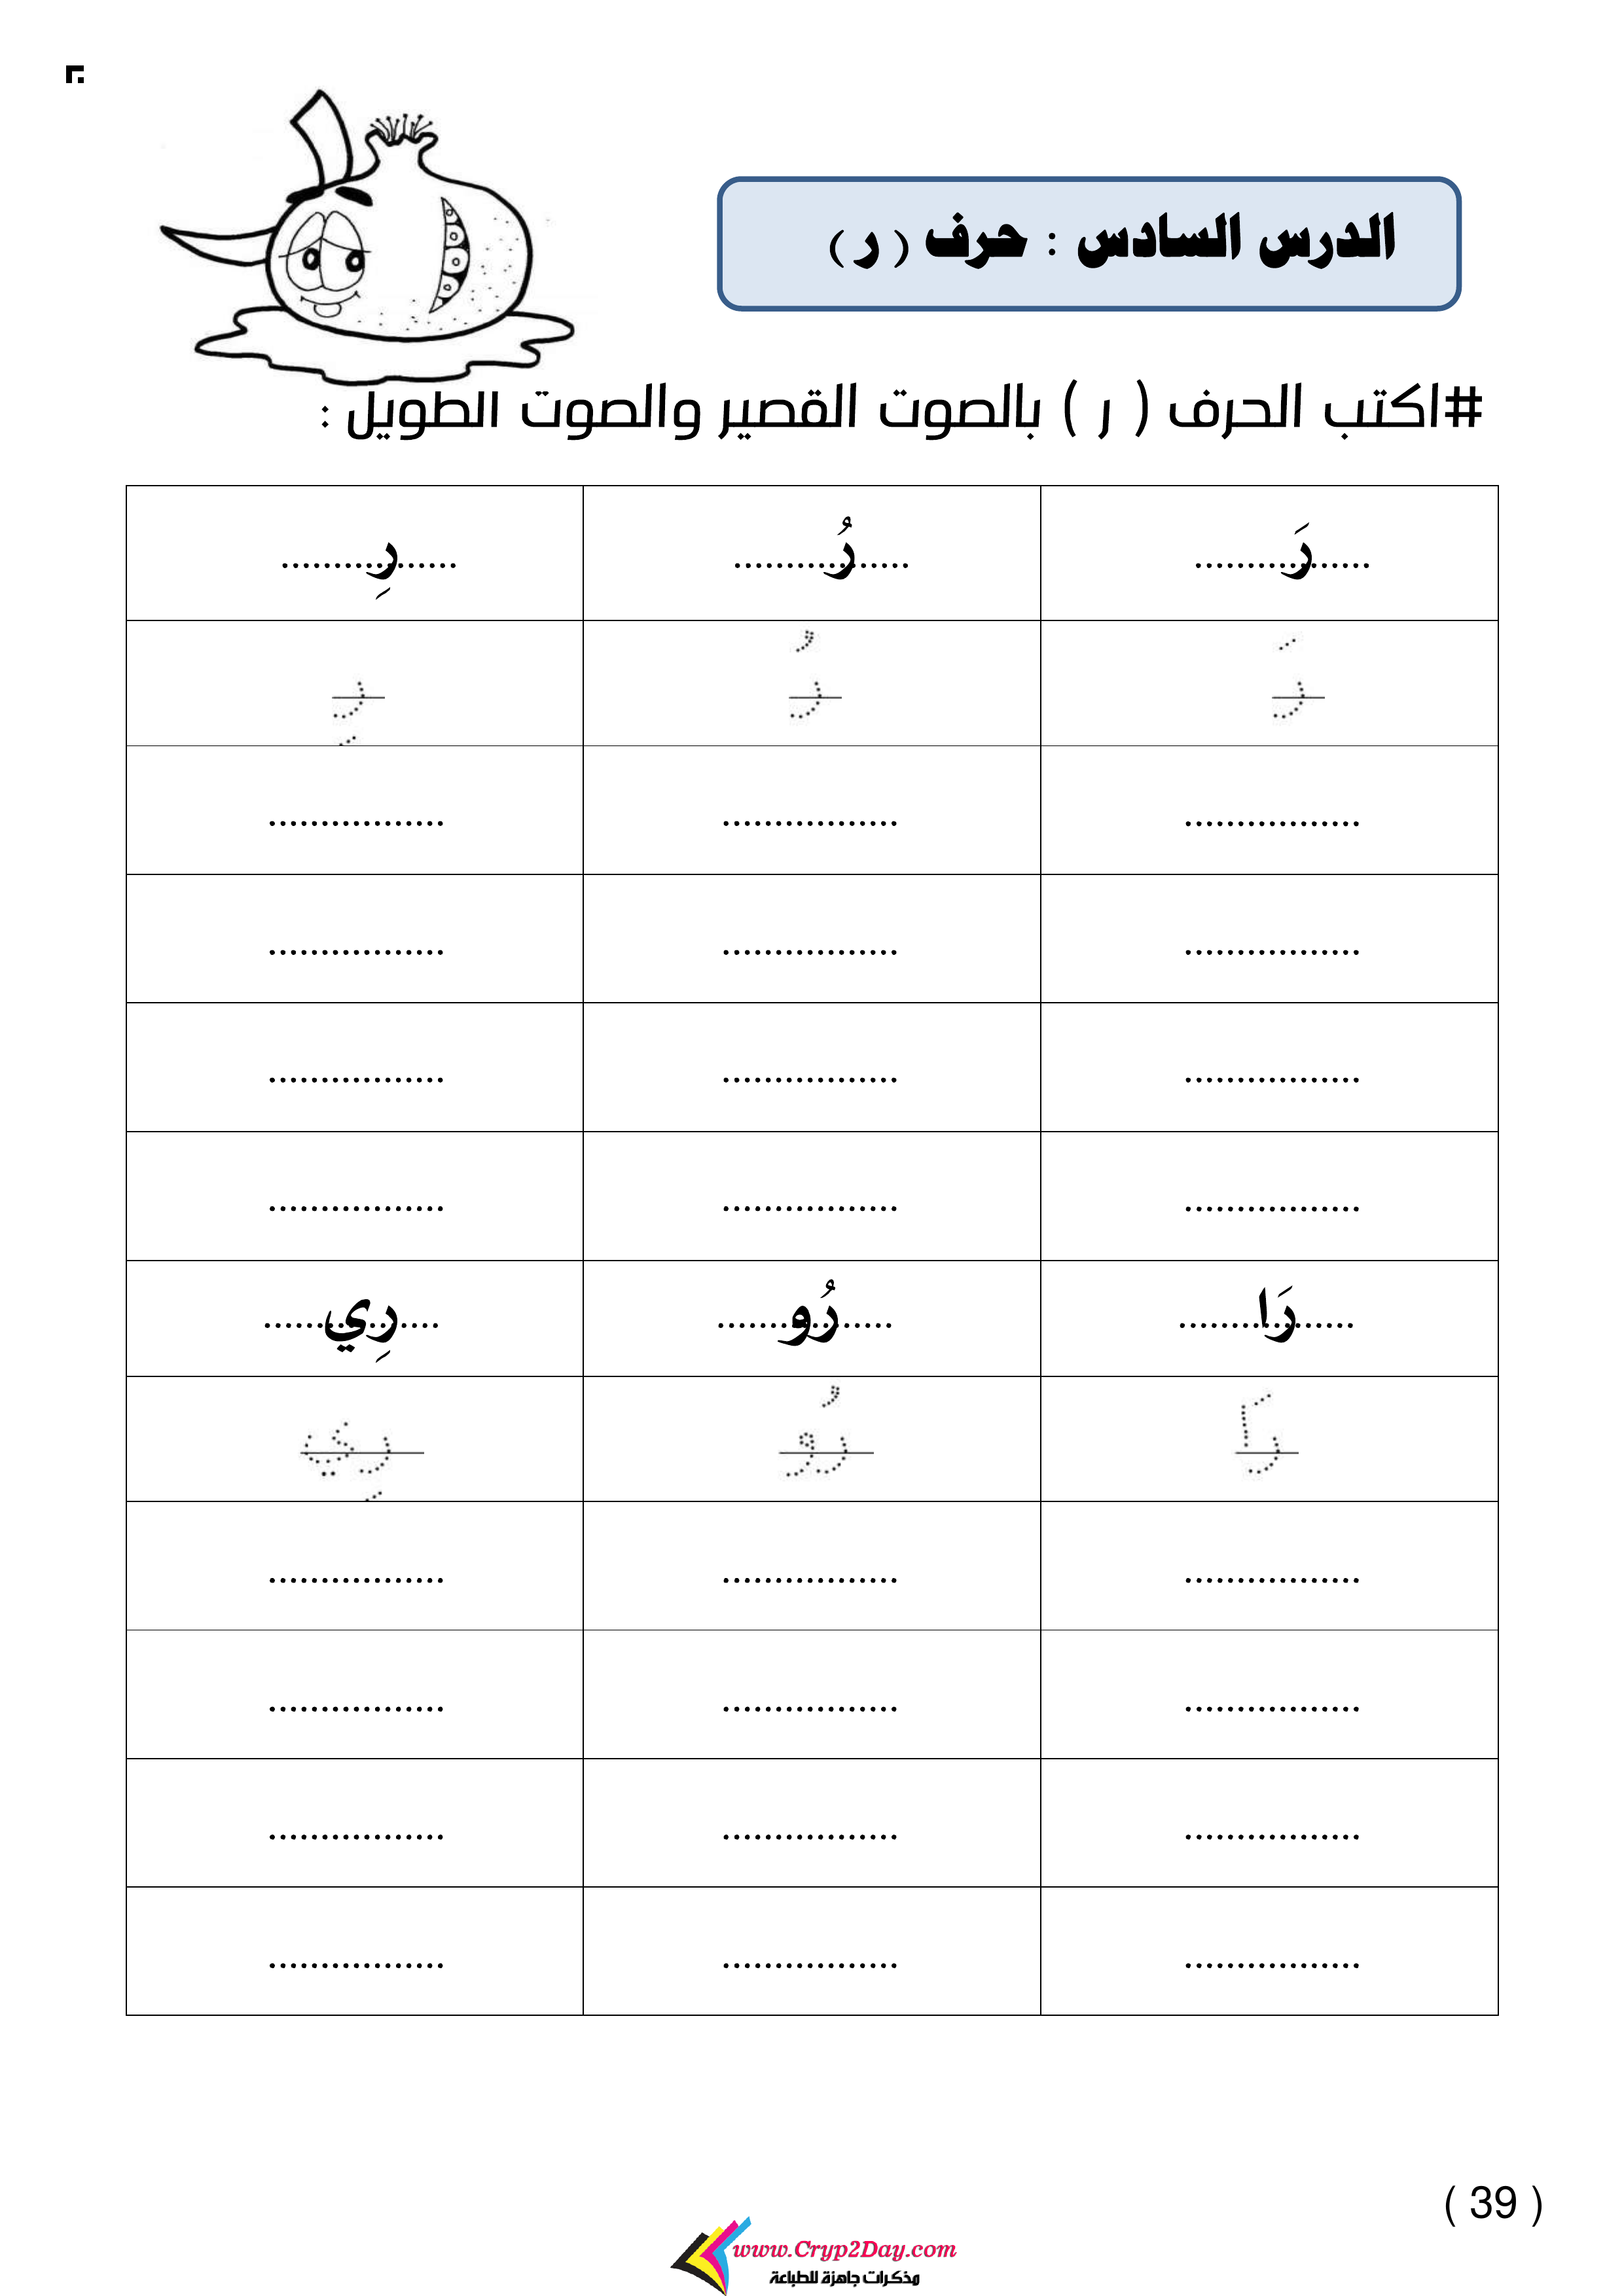 الدرس السادس : حرف ( ر )
#اكتب الحرف ( ر ) بالصوت القصير والصوت الطويل :
رَ................. رُ................. رِ.................
رَ رُ رِ
................. ................. .................
................. ................. .................
................. ................. .................
................. ................. .................
رَا................. رُو................. رِي.................
رَا رُو رِي
................. ................. .................
................. ................. .................
................. ................. .................
................. ................. .................
( 39 )
www.Cryp2Day.com
مذكرات جاهزة للطباعة